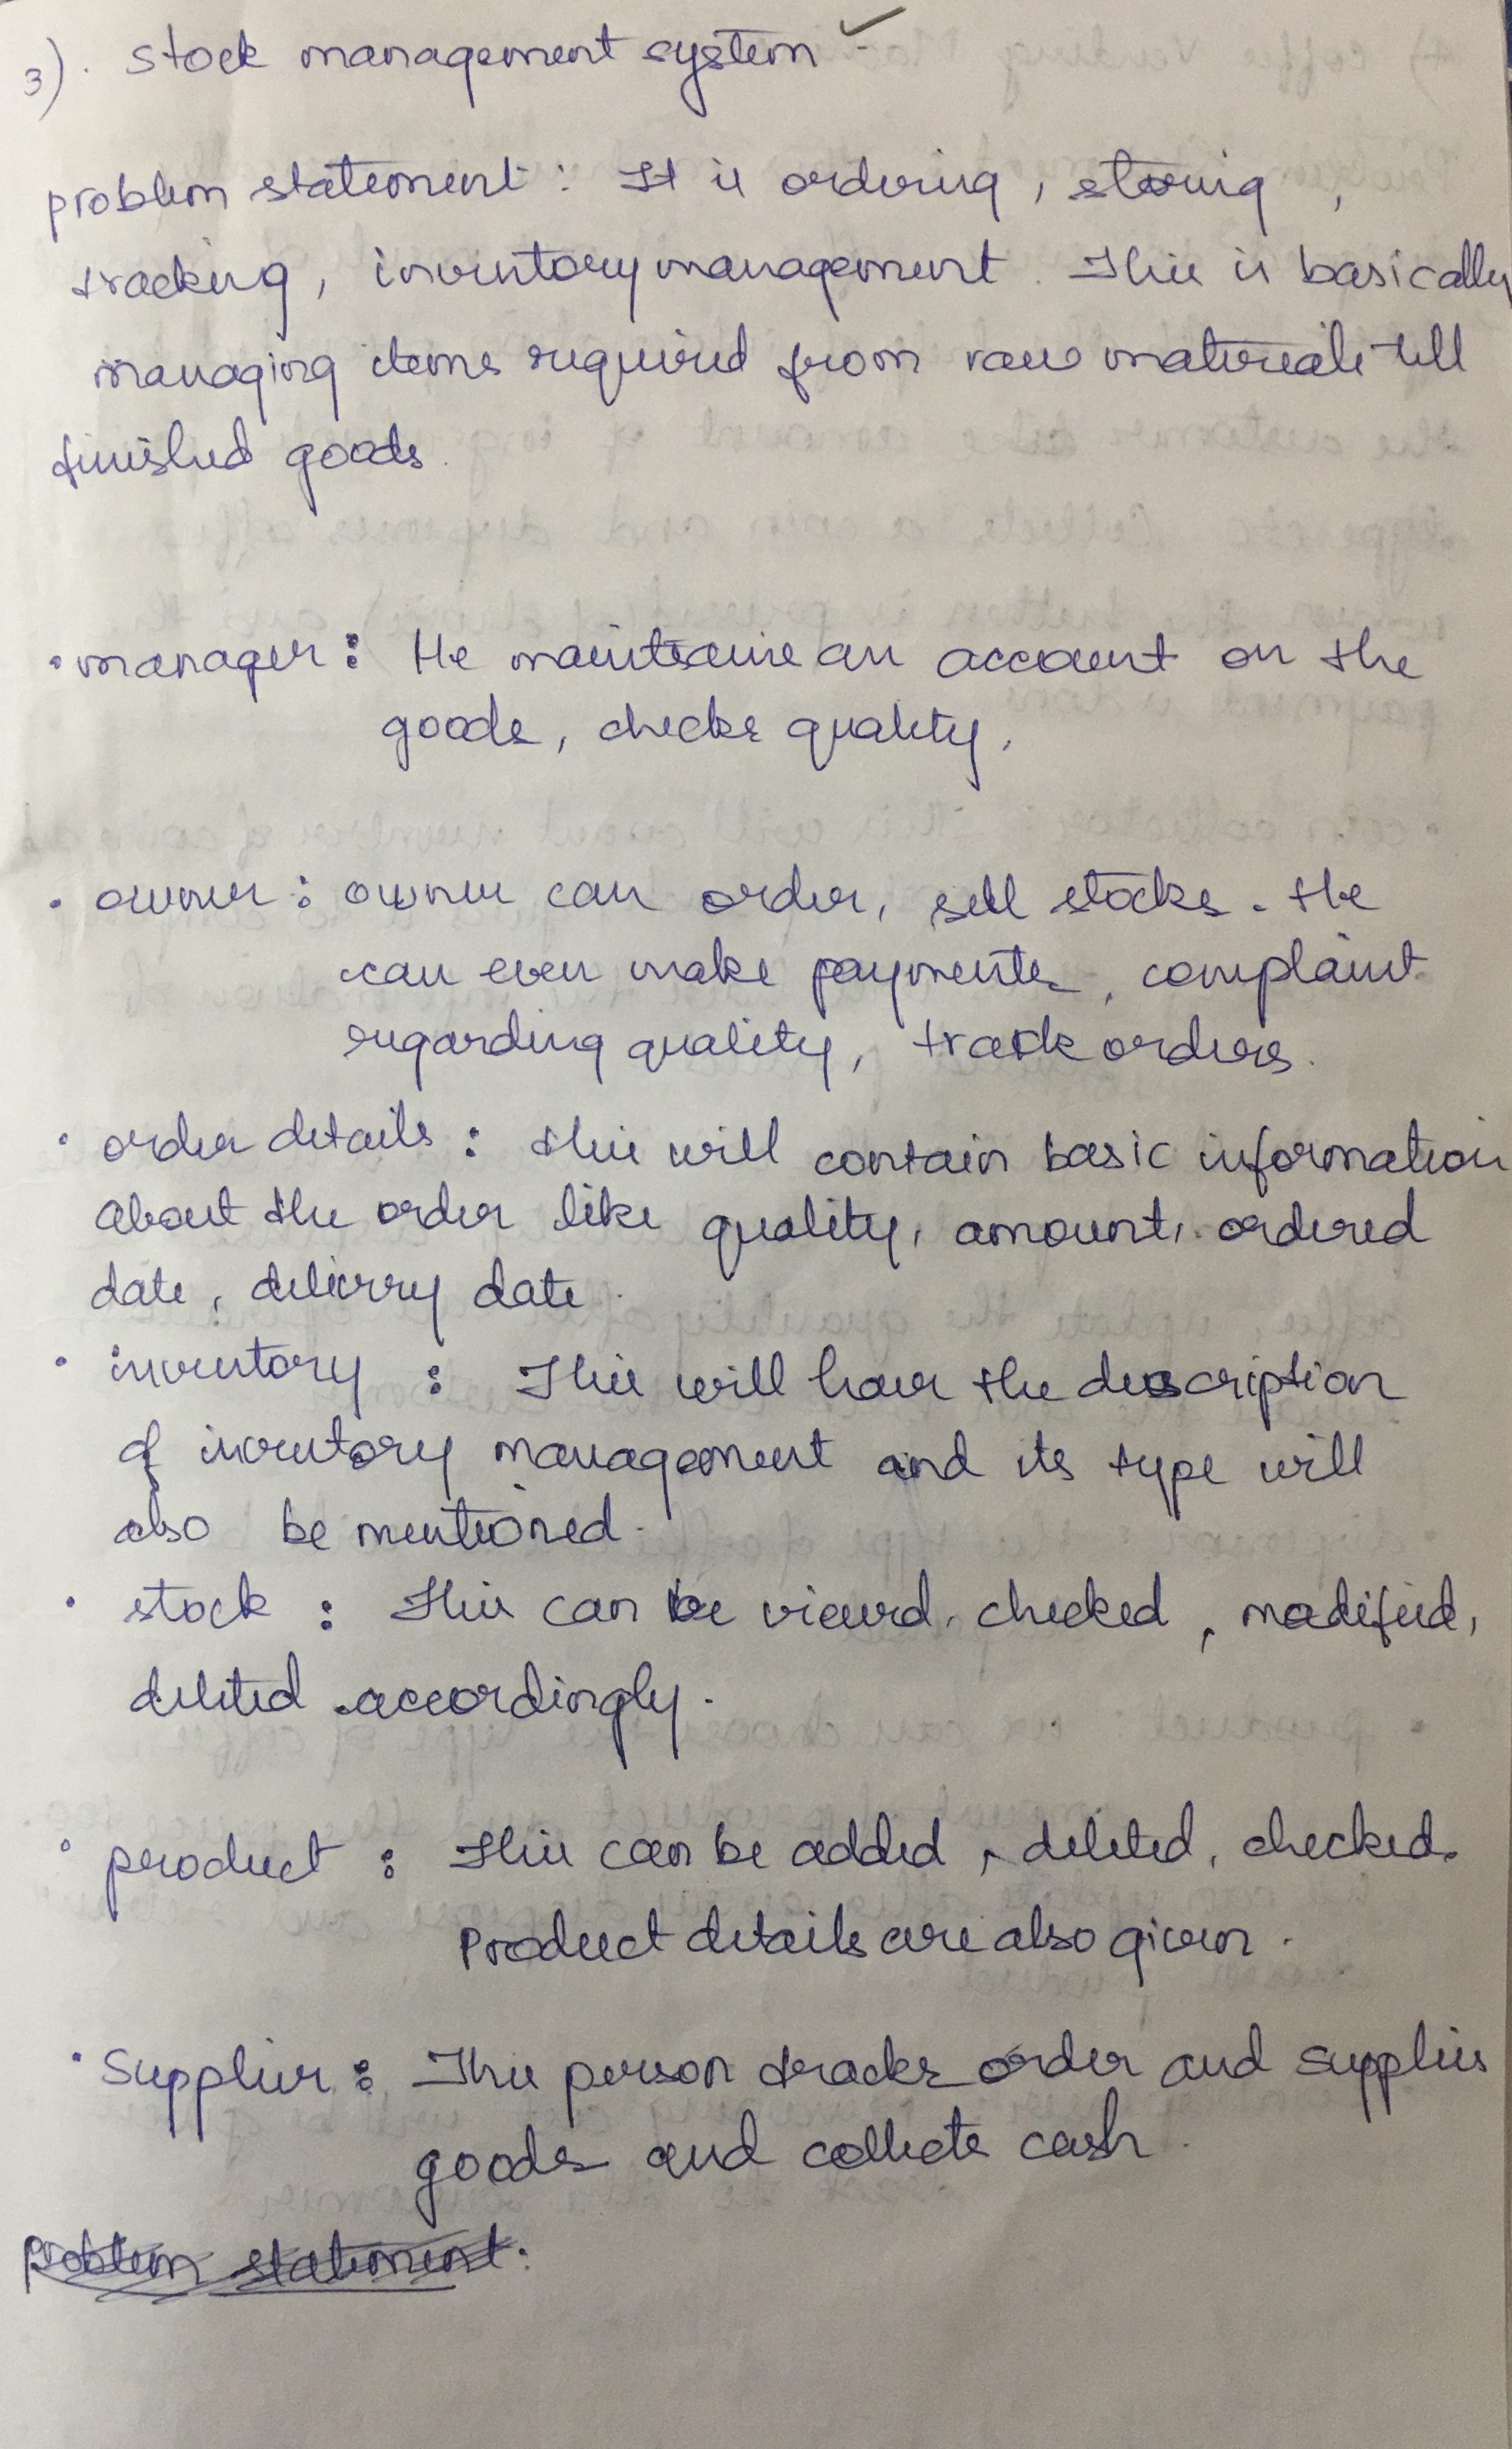 3). stock management system
problem statement : It is ordering, storing,
tracking, inventory management. This is basically
managing items required from raw materials till
finished goods.
• manager : He maintains an account on the
goods, checks quality.
• owner : owner can order, sell stocks. He
can even make payments, complaint
regarding quality, track orders.
• order details : this will contain basic information
about the order like quality, amount, ordered
date, delivery date.
• inventory : This will have the description
of inventory management and its type will
also be mentioned.
• stock : This can be viewed, checked, modified,
deleted accordingly.
• product : This can be added, deleted, checked.
Product details are also given.
• Supplier : This person tracks order and supplies
goods and collects cash.
problem statement: